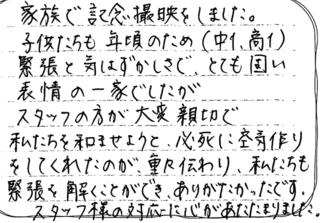 家族で記念撮映をしました。
子供たちも年頃のため(中1、高1)
緊張と気はずかしさで、とても固い
表情の一家でしたが
スタッフの方が大変親切で
私たちを和ませようと、必死に空気作り
をしてくれたのが、重々伝わり、私たちも
緊張を解くことができ、ありがたかったです。
スタッフ様の対応に心があたたまりました。